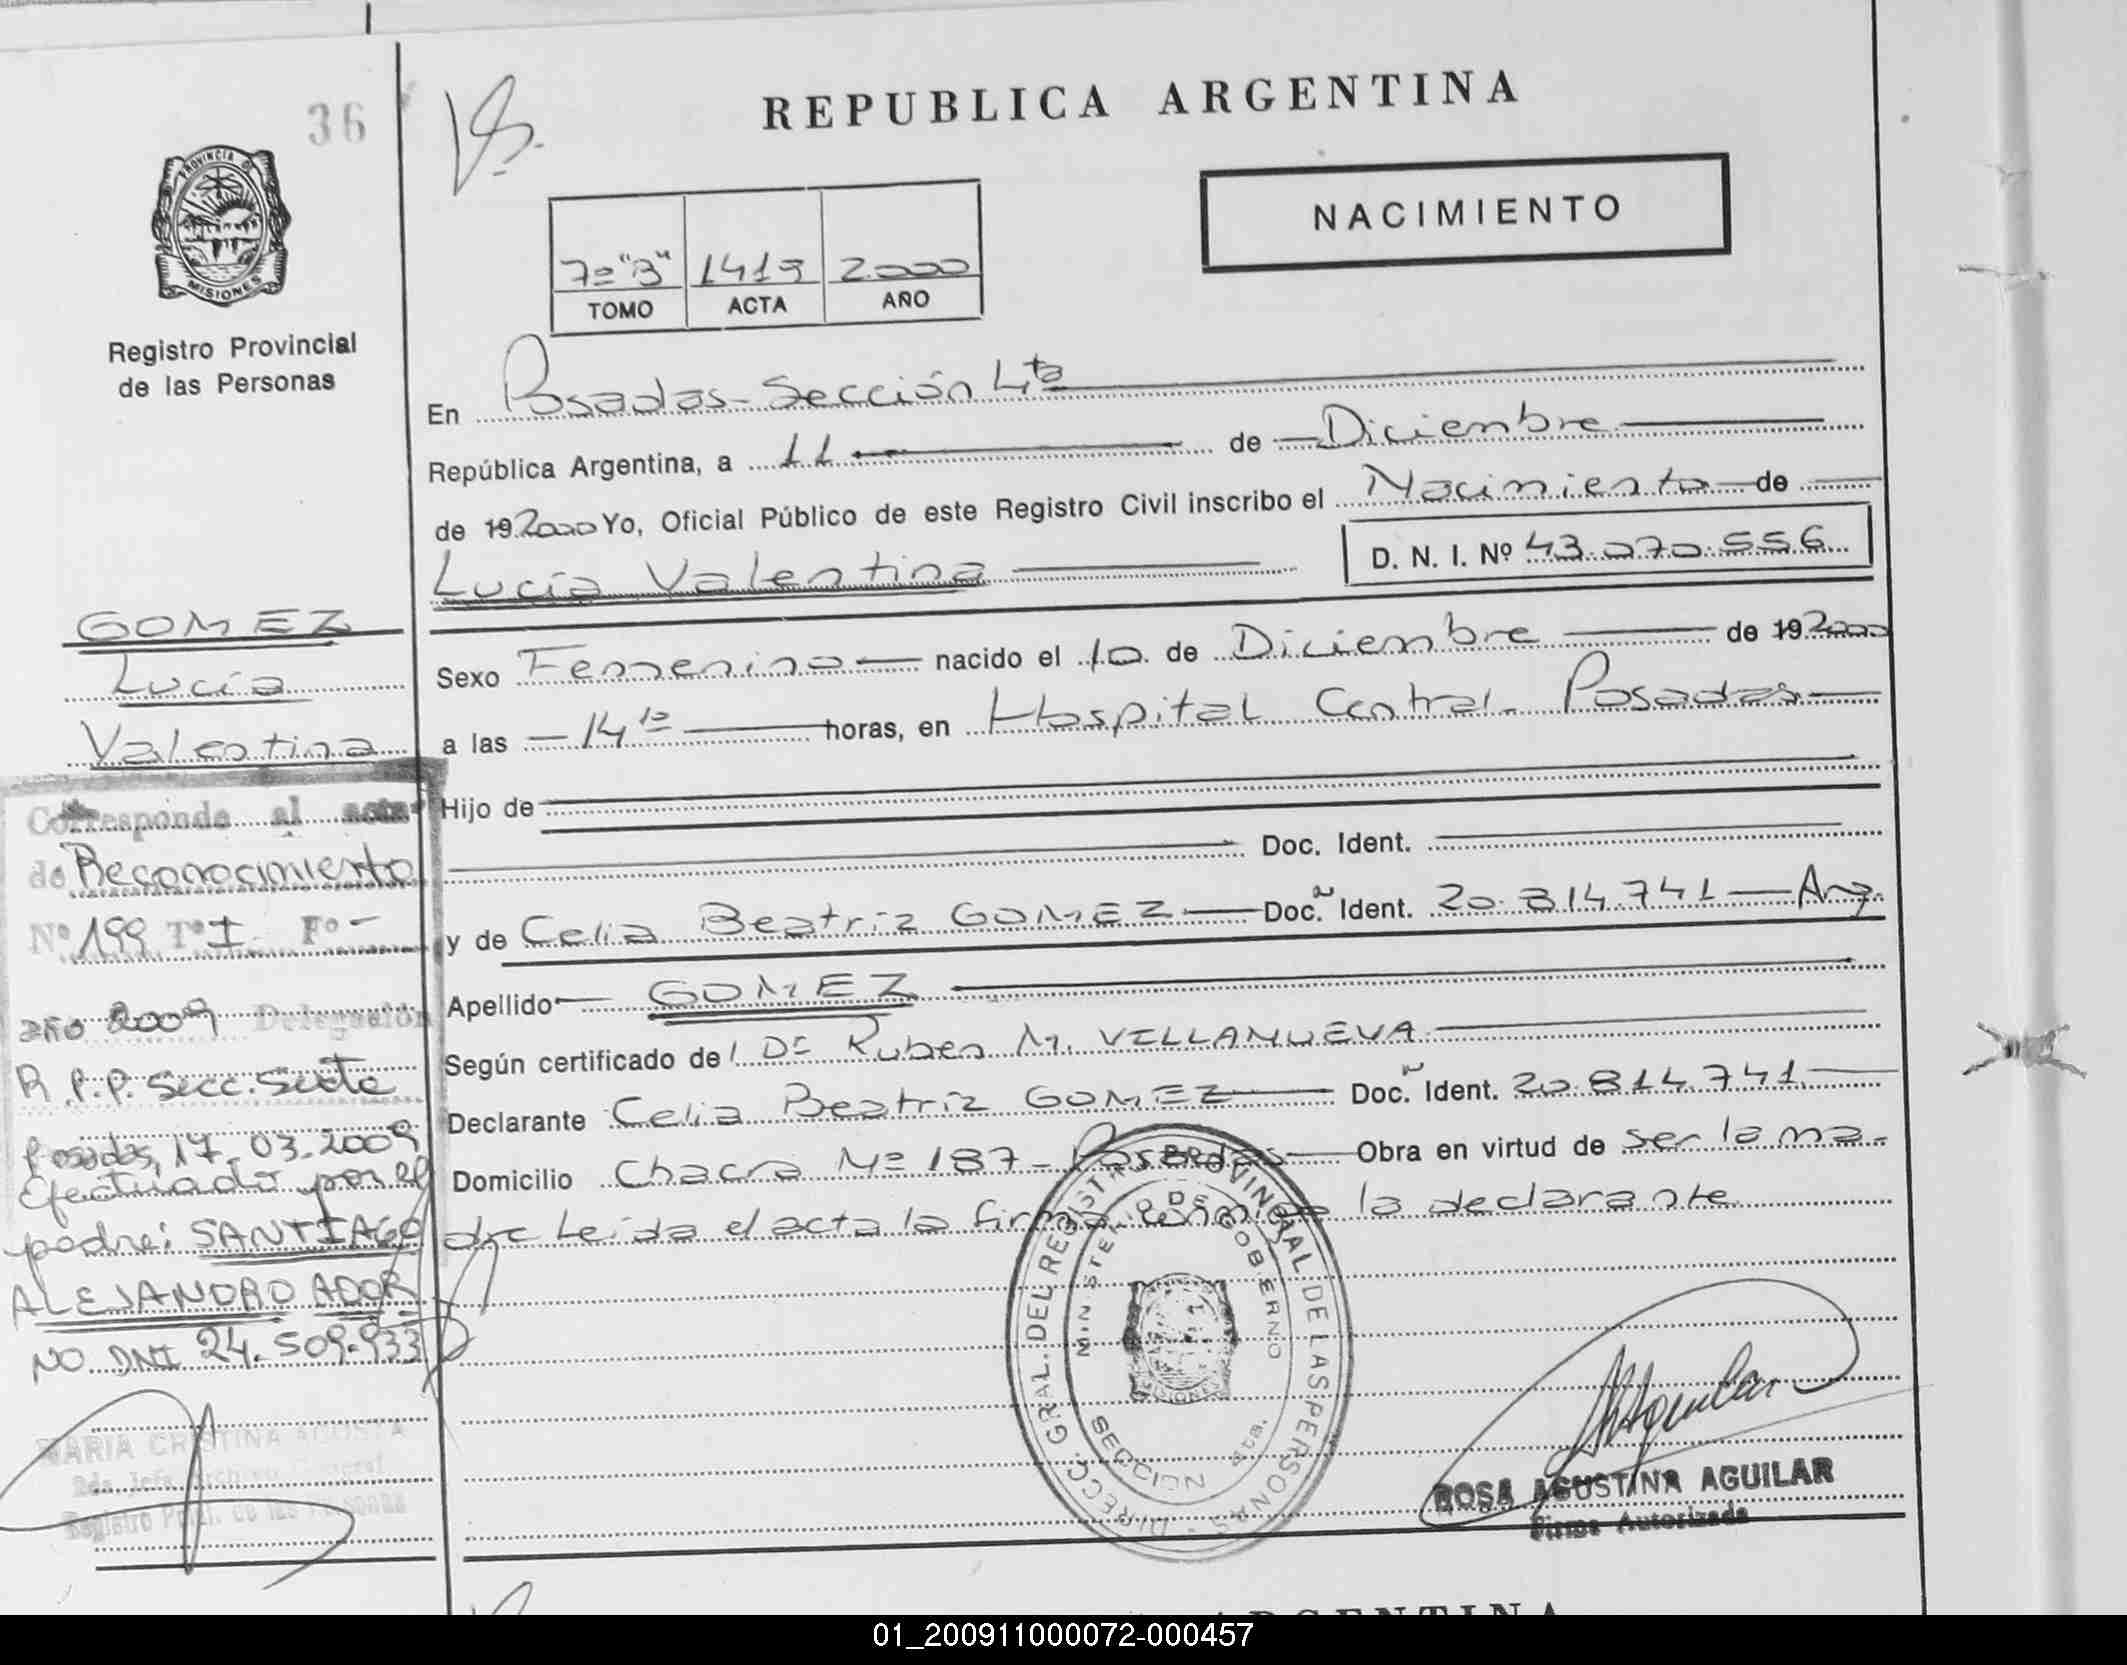 36
PROVINCIA DE
MISIONES
Registro Provincial
de las Personas
REPUBLICA ARGENTINA
NACIMIENTO
7º "B" 1419 2.000
TOMO ACTA AÑO
En Posadas - Sección 4ta
República Argentina, a 11 de Diciembre
de 19 2000 Yo, Oficial Público de este Registro Civil inscribo el Nacimiento de
Lucía Valentina D. N. I. Nº 43.070.556
Sexo Femenino nacido el 10 de Diciembre de 19 2000
a las 14 horas, en Hospital Central - Posadas
Hijo de
Doc. Ident.
y de Celia Beatriz GOMEZ Doc. Ident. 20.814.741 Arg.
Apellido GOMEZ
Según certificado de Dr Ruben M. VILLANUEVA
Declarante Celia Beatriz GOMEZ Doc. Ident. 20.814.741
Domicilio Chacra Nº 187 - Posadas Obra en virtud de ser la ma-
dre Leida el acta la firma conmigo la declarante
GOMEZ
Lucía
Valentina
Corresponde al acta
de Reconocimiento
Nº 199 Tº I Fº -
año 2009 Delegación
R.P.P. Secc. Sexta
Posadas, 17.03.2009
Efectuado por el
padre: SANTIAGO
ALEJANDRO ADOR
NO DNI 24.509.933
MARIA CRISTINA ACOSTA
2da. Jefa Archivo General
Registro Pcial. de las Personas
DIRECC. GRAL. DEL REGISTRO PROVINCIAL DE LAS PERSONAS
MINISTERIO DE GOBIERNO
SECCION 4ta.
MISIONES
ROSA AGUSTINA AGUILAR
Firma Autorizada
ARGENTINA
01_200911000072-000457